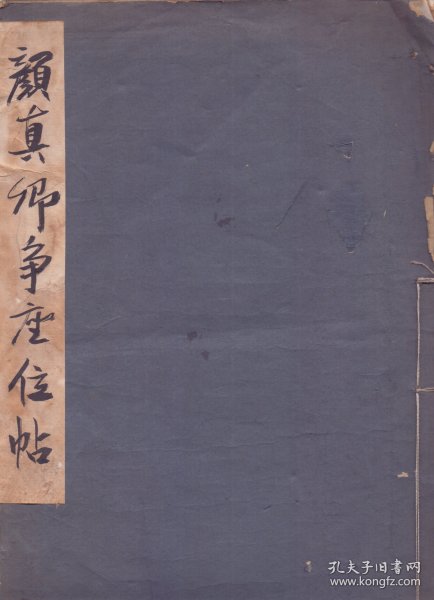 顔真卿争座位帖
孔夫子旧书网
www.kongfz.com